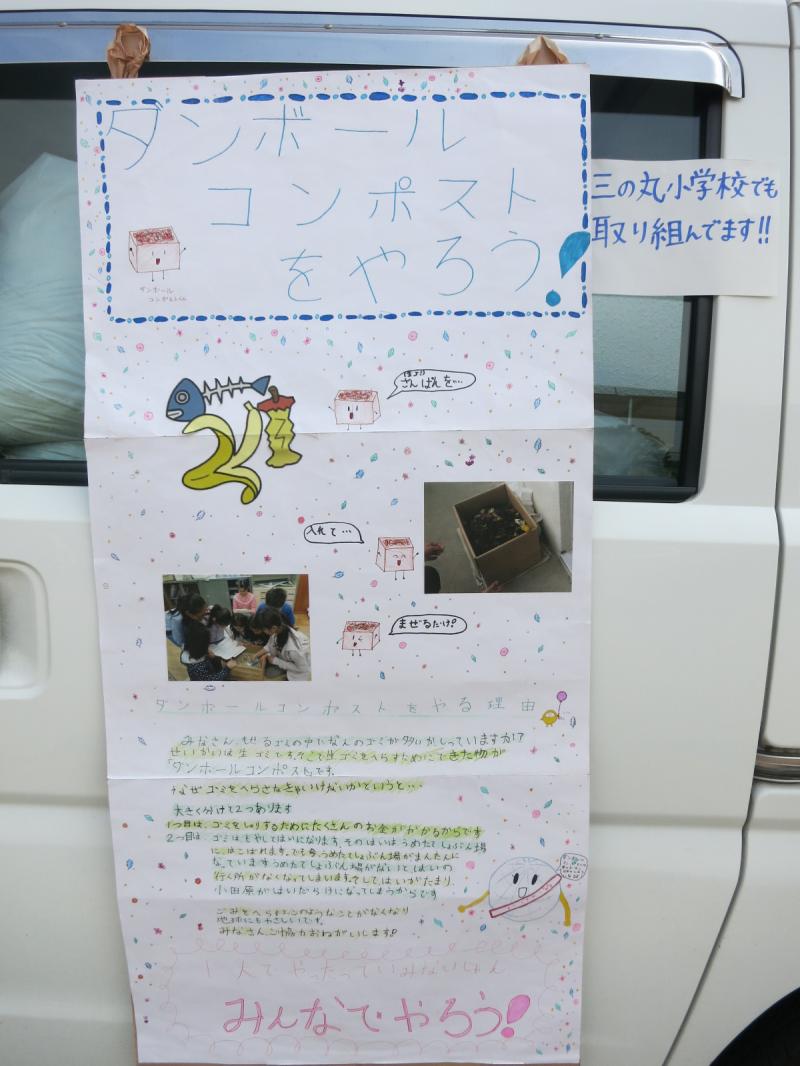 ダンボール
コンポスト
をやろう!
三の丸小学校でも
取り組んでます!!
ダンボール
コンポストくん
ざんぱんを…
入れて…
まぜるだけ!?
ダンボールコンポストをやる理由
みなさん、もせるゴミの中でなんのゴミが多いかしっていますか!?
せいかいは生ゴミです。そこで生ゴミをへらすためにできた物が
「ダンボールコンポスト」です。
なぜゴミをへらさなきゃいけないかというと…
大きく分けて2つあります
1つ目は、ゴミをしょりするためにたくさんのお金がかかるからです
2つ目は、ゴミはもやしてはいになります。そのはいは、うめたてしょぶん場
に、はこばれます。でも今、うめたてしょぶん場がまんたんに
なっています うめたてしょぶん場がないとはいの
行く所がなくなってしまいます。そしてはいがたまり、
小田原がはいだらけになってしまうからです
ごみをへらせばこのようなことがなくなり
地球にもやさしいです。
みなさん、ご協力おねがいします!
1人でやったっていみないじゃん
みんなでやろう!